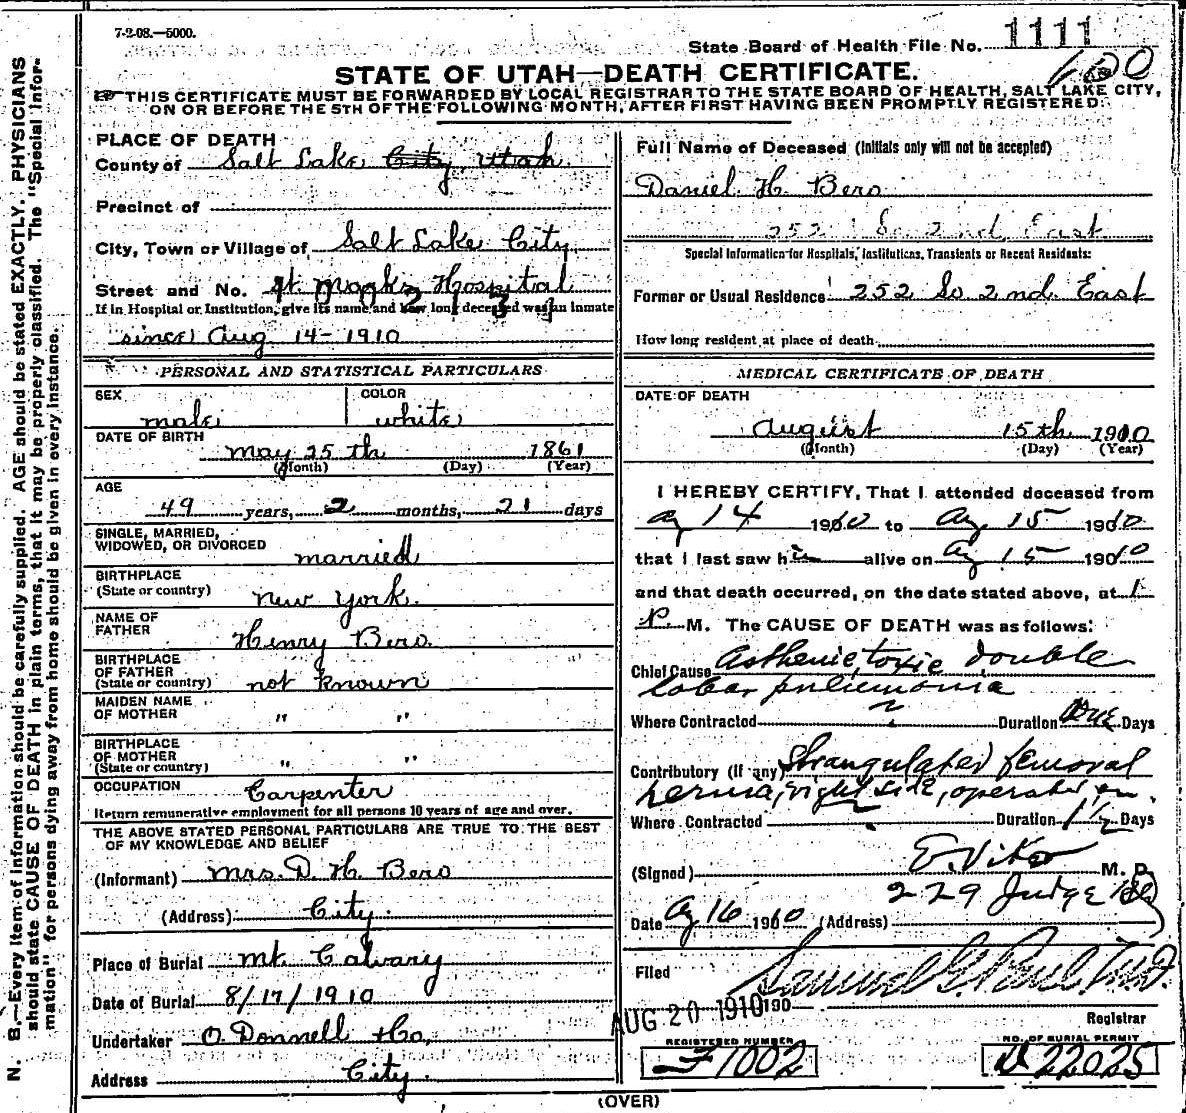 7-2-08.—5000.
State Board of Health File No. 1111
STATE OF UTAH—DEATH CERTIFICATE.
THIS CERTIFICATE MUST BE FORWARDED BY LOCAL REGISTRAR TO THE STATE BOARD OF HEALTH, SALT LAKE CITY,
ON OR BEFORE THE 5TH OF THE FOLLOWING MONTH, AFTER FIRST HAVING BEEN PROMPTLY REGISTERED.
N. B.—Every item of information should be carefully supplied. AGE should be stated EXACTLY. PHYSICIANS
should state CAUSE OF DEATH in plain terms, that it may be properly classified. The "Special Infor-
mation" for persons dying away from home should be given in every instance.
PLACE OF DEATH
County of Salt Lake City Utah
Precinct of
City, Town or Village of Salt Lake City
Street and No. St. Marks Hospital
If in Hospital or Institution, give its name and how long deceased was an inmate
since Aug 14-1910
PERSONAL AND STATISTICAL PARTICULARS
SEX male COLOR white
DATE OF BIRTH
May 25th 1861
(Month) (Day) (Year)
AGE
49 years, 2 months, 21 days
SINGLE, MARRIED,
WIDOWED, OR DIVORCED married
BIRTHPLACE
(State or country) New York.
NAME OF
FATHER Henry Bero.
BIRTHPLACE
OF FATHER
(State or country) not known
MAIDEN NAME
OF MOTHER " "
BIRTHPLACE
OF MOTHER
(State or country) " "
OCCUPATION Carpenter
Return remunerative employment for all persons 10 years of age and over.
THE ABOVE STATED PERSONAL PARTICULARS ARE TRUE TO THE BEST
OF MY KNOWLEDGE AND BELIEF
(Informant) Mrs. D. H. Bero
(Address) City.
Place of Burial Mt. Calvary
Date of Burial 8/17/1910
Undertaker O. Donnell & Co.
Address City.
Full Name of Deceased (Initials only will not be accepted)
Daniel H. Bero
252 So 2nd East
Special Information for Hospitals, Institutions, Transients or Recent Residents:
Former or Usual Residence 252 So 2nd. East
How long resident at place of death
MEDICAL CERTIFICATE OF DEATH
DATE OF DEATH
August 15th 1910
(Month) (Day) (Year)
I HEREBY CERTIFY, That I attended deceased from
Ag 14 1910 to Ag 15 1910
that I last saw him alive on Ag 15 1910
and that death occurred, on the date stated above, at 1
P. M. The CAUSE OF DEATH was as follows:
Chief Cause Asthenic, toxic double
lobar pneumonia
Where Contracted ? Duration One Days
Contributory (If any) Strangulated femoral
hernia, right side, operated on.
Where Contracted ? Duration 1½ Days
(Signed) E. Viko M. D.
229 Judge Bld
Date Ag 16 1910 (Address)
Filed Samuel G. Paul, M.D.
AUG 20 1910 190
Registrar
REGISTERED NUMBER
1002
NO. OF BURIAL PERMIT
22025
(OVER)